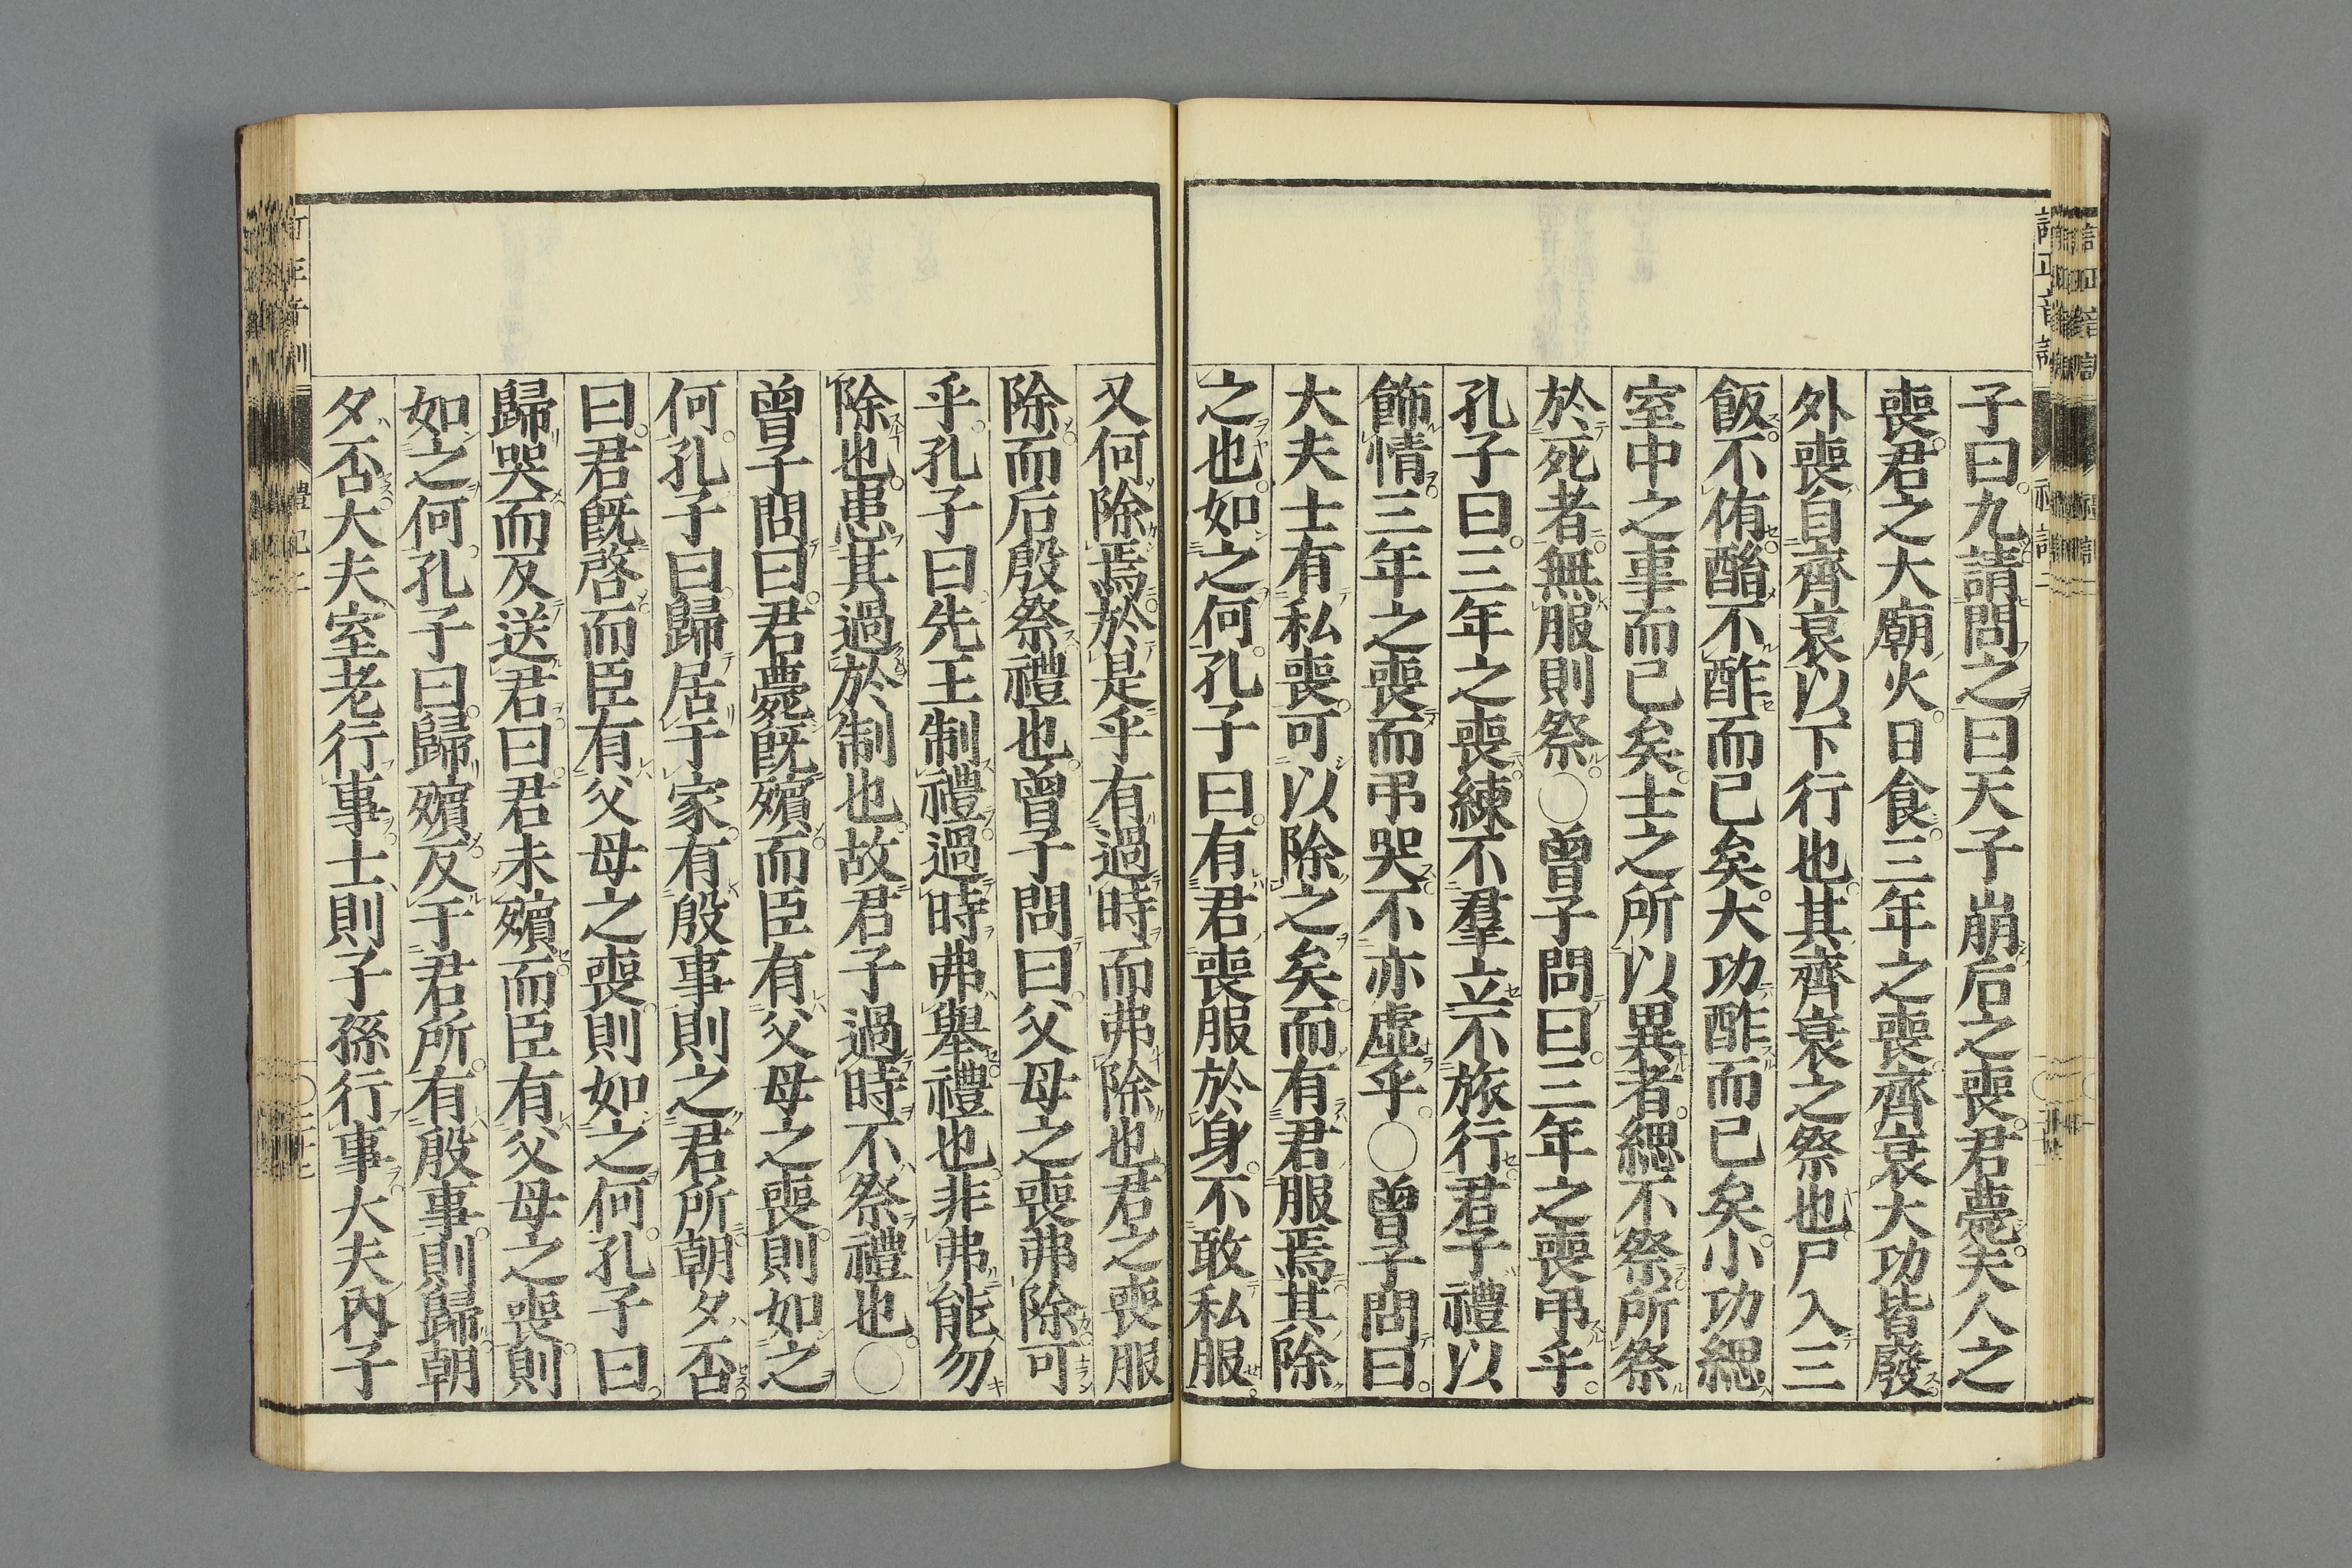 子曰九請問之曰天子崩后之喪君薨夫人之
喪君之大廟火日食三年之喪齊衰大功皆廢
外喪自齊衰以下行也其齊衰之祭也尸入三
飯不侑酳不酢而已矣大功酢而已矣小功緦
室中之事而已矣士之所以異者緦不祭所祭
於死者無服則祭○曾子問曰三年之喪弔乎
孔子曰三年之喪練不羣立不旅行君子禮以
飾情三年之喪而弔哭不亦虛乎○曾子問曰
大夫士有私喪可以除之矣而有君服焉其除
之也如之何孔子曰有君喪服於身不敢私服
又何除焉於是乎有過時而弗除也君之喪服
除而后殷祭禮也曾子問曰父母之喪弗除可
乎孔子曰先王制禮過時弗舉禮也非弗能勿
除也患其過於制也故君子過時不祭禮也○
曾子問曰君薨既殯而臣有父母之喪則如之
何孔子曰歸居于家有殷事則之君所朝夕否
曰君既啓而臣有父母之喪則如之何孔子曰
歸哭而反送君曰君未殯而臣有父母之喪則
如之何孔子曰歸殯反于君所有殷事則歸朝
夕否大夫室老行事士則子孫行事大夫內子